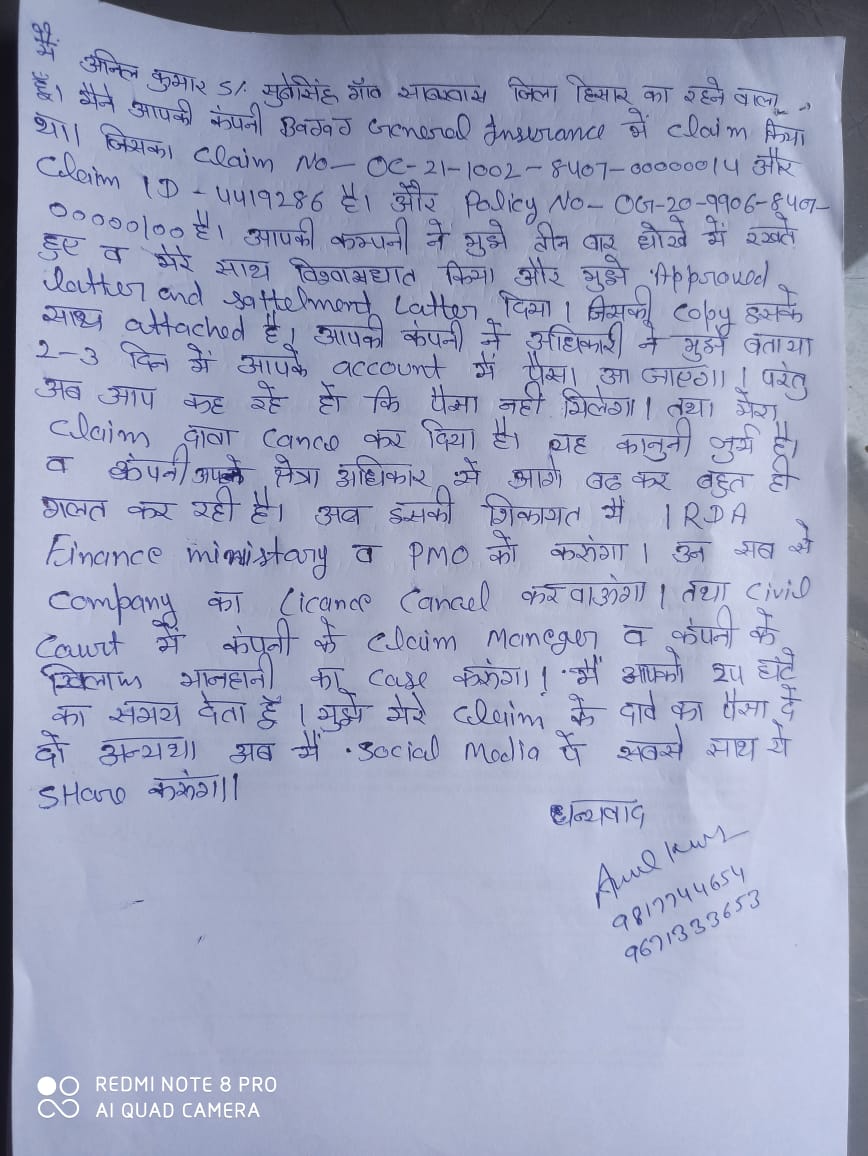 मैं अनिल कुमार S/. सुबेसिंह गाँव साबरवास जिला हिसार का रहने वाला
हूँ। मैने आपकी कंपनी Bazaz General Insurance में claim किया
था। जिसका Claim No- OC-21-1002-8407-00000014 और
Claim ID - 4419286 है। और Policy No- OG-20-9906-8407-
00000100 है। आपकी कम्पनी ने मुझे तीन बार धोखे में रखते
हुए व मेरे साथ विश्वासघात किया और मुझे Approved
latter and sattelment Latter दिया। जिसकी copy इसके
साथ attached है। आपकी कंपनी ने अधिकारी ने मुझे बताया
2-3 दिन में आपके account में पैसा आ जाएगा। परंतु
अब आप कह रहे हो कि पैसा नही मिलेगा। तथा मेरा
Claim दावा Cance कर दिया है। यह कानुनी जुर्म है।
व कंपनी अपने क्षेत्रा अधिकार से आगे बढ कर बहुत ही
गलत कर रही है। अब इसकी शिकायत में IRDA
Finance ministary व PMO को करुंगा। उन सब से
Company का Licance Cancel करवाऊंगा। तथा civil
Court में कंपनी के Claim Maneger व कंपनी के
खिलाफ मानहानी का case करुंगा। मैं आपको २५ घंटे
का समय देता हूँ। मुझे मेरे claim के दावे का पैसा दे
दो अन्यथा अब मैं social Media पे सबसे साथ ये
SHare करुंगा।
धन्यवाद
Anil Kumar
9817744654
9671333653
REDMI NOTE 8 PRO
AI QUAD CAMERA